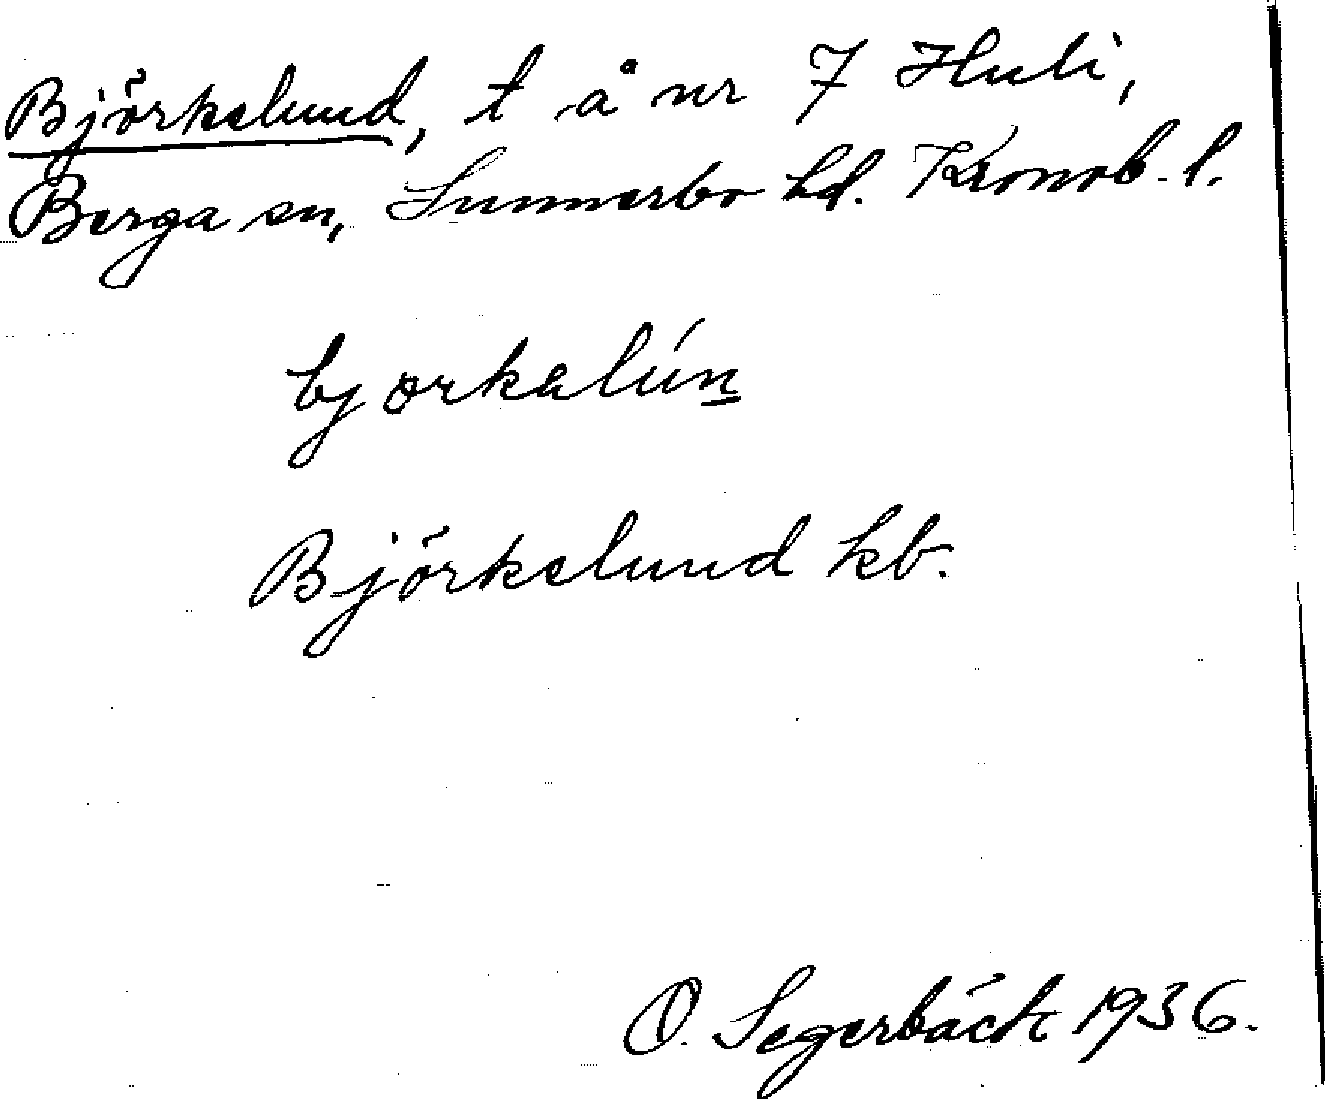 Björkelund, t å nr 7 Huli,
Berga sn, Sunnerbo hd. Kronob. l.
bjørkalún
Björkelund kb.
O. Segerbäck 1936.